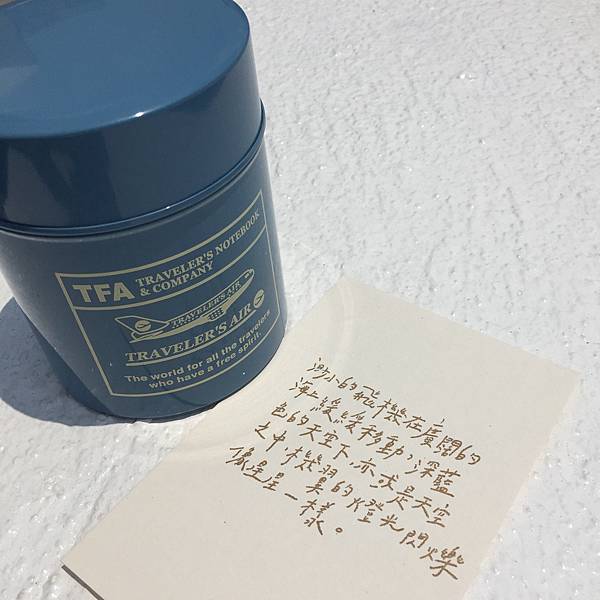 TFA TRAVELER'S NOTEBOOK
& COMPANY
TRAVELER'S AIR
TRAVELER'S AIR
The world for all the travelers
who have a free spirit.
渺小的飛機在廣闊的
海上緩緩移動，深藍
色的天空下，亦或是天空
之中，機羽
像是星一般的燈光閃爍
一樣。